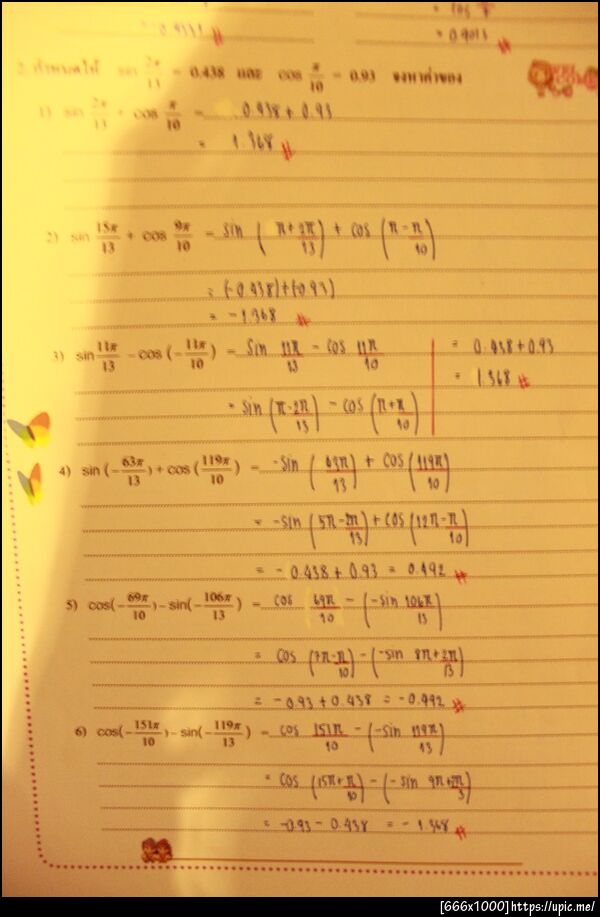 = 0.9013 #
2. กำหนดให้ sin 2π/13 = 0.438 และ cos π/10 = 0.93 จงหาค่าของ
1) sin 2π/13 + cos π/10 = 0.438 + 0.93
= 1.368 #
2) sin 15π/13 + cos 9π/10 = sin (π + 2π/13) + cos (π - π/10)
= (-0.438) + (-0.93)
= -1.368 #
3) sin 11π/13 - cos (-11π/10) = sin 11π/13 - cos 11π/10
= sin (π - 2π/13) - cos (π + π/10)
= 0.438 + 0.93
= 1.368 #
4) sin (-63π/13) + cos (119π/10) = -sin (63π/13) + cos (119π/10)
= -sin (5π - 2π/13) + cos (12π - π/10)
= -0.438 + 0.93 = 0.492 #
5) cos(-69π/10) - sin(-106π/13) = cos 69π/10 - (-sin 106π/13)
= cos (7π - π/10) - (-sin 8π + 2π/13)
= -0.93 + 0.438 = -0.492 #
6) cos(-151π/10) - sin(-119π/13) = cos 151π/10 - (-sin 119π/13)
= cos (15π + π/10) - (-sin 9π +
= -0.93 - 0.438 = -1.368 #
[666x1000]https://upic.me/